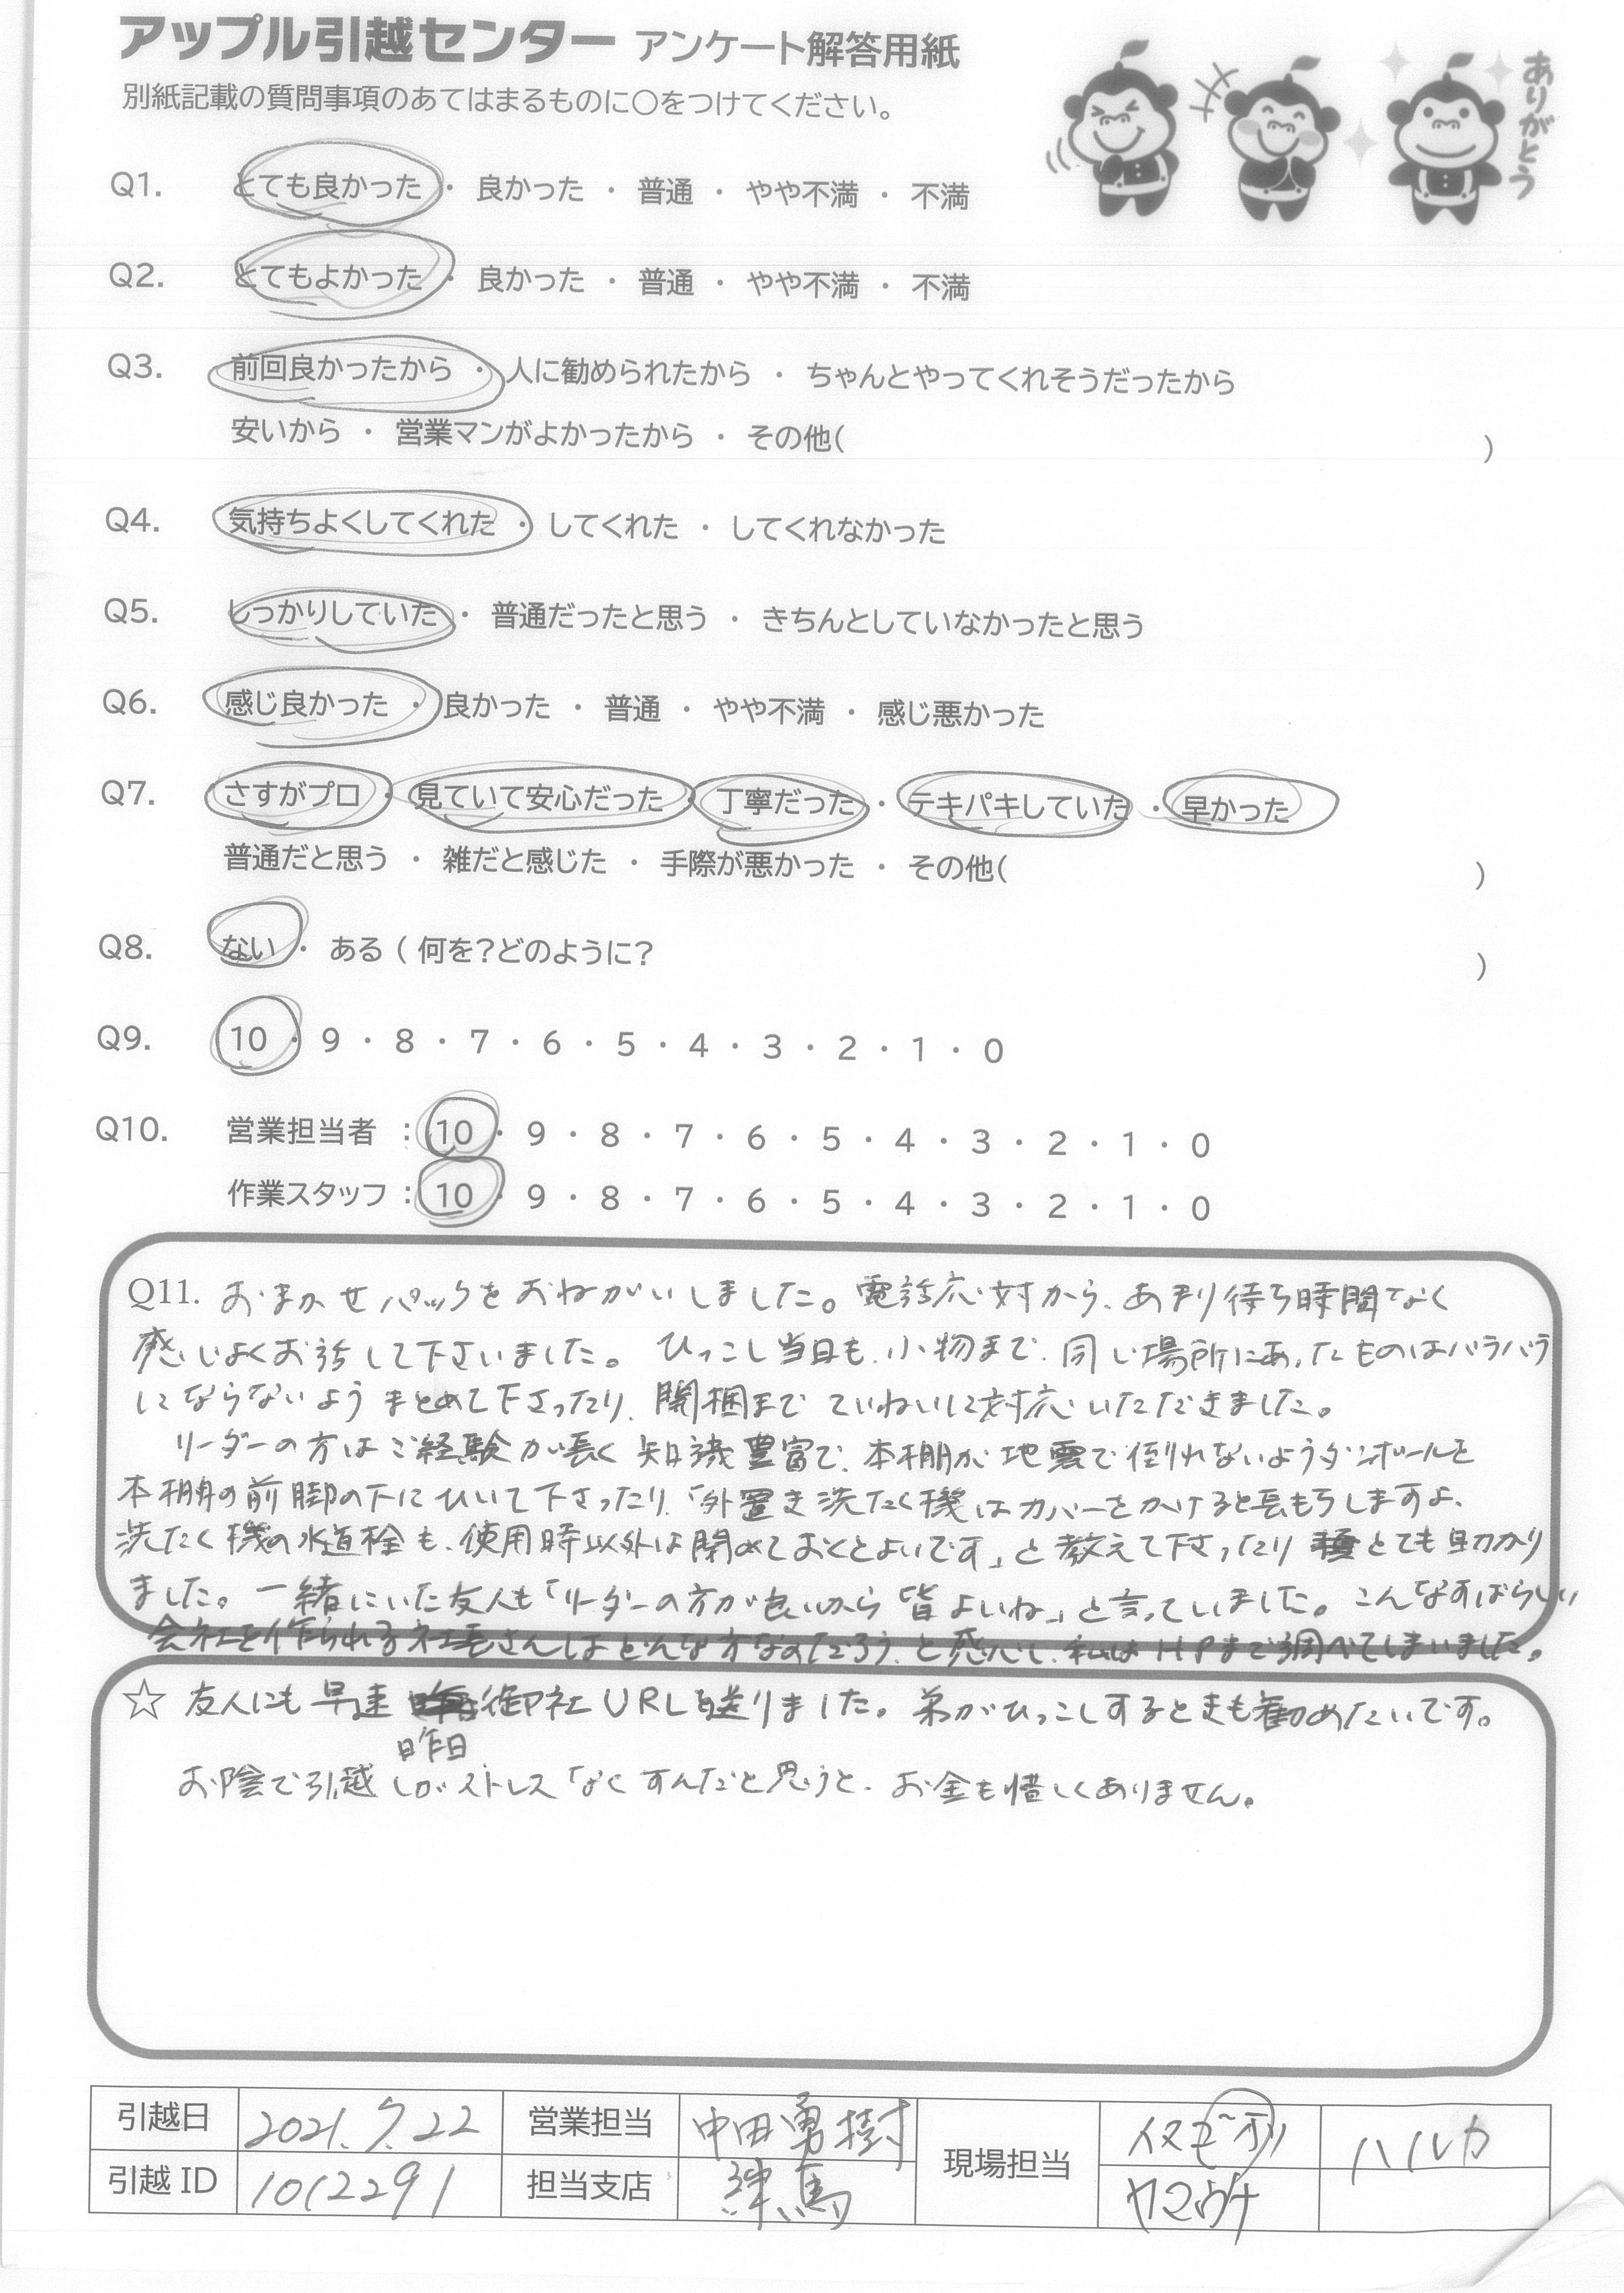 アップル引越センター アンケート解答用紙
ありがとう
別紙記載の質問事項のあてはまるものに○をつけてください。
Q1. とても良かった ・ 良かった ・ 普通 ・ やや不満 ・ 不満
Q2. とてもよかった ・ 良かった ・ 普通 ・ やや不満 ・ 不満
Q3. 前回良かったから ・ 人に勧められたから ・ ちゃんとやってくれそうだったから
安いから ・ 営業マンがよかったから ・ その他( )
Q4. 気持ちよくしてくれた ・ してくれた ・ してくれなかった
Q5. しっかりしていた ・ 普通だったと思う ・ きちんとしていなかったと思う
Q6. 感じ良かった ・ 良かった ・ 普通 ・ やや不満 ・ 感じ悪かった
Q7. さすがプロ ・ 見ていて安心だった ・ 丁寧だった ・ テキパキしていた ・ 早かった
普通だと思う ・ 雑だと感じた ・ 手際が悪かった ・ その他( )
Q8. ない ・ ある ( 何を?どのように? )
Q9. 10 ・ 9 ・ 8 ・ 7 ・ 6 ・ 5 ・ 4 ・ 3 ・ 2 ・ 1 ・ 0
Q10. 営業担当者 : 10 ・ 9 ・ 8 ・ 7 ・ 6 ・ 5 ・ 4 ・ 3 ・ 2 ・ 1 ・ 0
作業スタッフ : 10 ・ 9 ・ 8 ・ 7 ・ 6 ・ 5 ・ 4 ・ 3 ・ 2 ・ 1 ・ 0
Q11. おまかせパックをおねがいしました。電話応対から、あまり待ち時間なく
感じよくお話して下さいました。 ひっこし当日も、小物まで、同じ場所にあったものはバラバラ
にならないようまとめて下さったり、開梱までていねいに対応いただきました。
リーダーの方はご経験が長く知識豊富で、本棚が地震で倒れないようダンボールを
本棚の前脚の下にひいて下さったり、「外置き洗たく機はカバーをかけると長もちしますよ、
洗たく機の水道栓も、使用時以外は閉めておくとよいです」と教えて下さったり とても助かり
ました。一緒にいた友人も「リーダーの方が良いから皆よいね」と言っていました。こんなすばらしい
会社を作られる社長さんはどんな方なのだろう、と感心し、私はHPまで調べてしまいました。
☆ 友人にも早速 御社URLを送りました。弟がひっこしするときも勧めたいです。
昨日
お陰で引越しがストレスなくすんだと思うと、お金も惜しくありません。
引越日 2021.7.22 営業担当 中田勇樹 現場担当 ハルカ
引越ID 1012291 担当支店 練馬 ヤマウチ